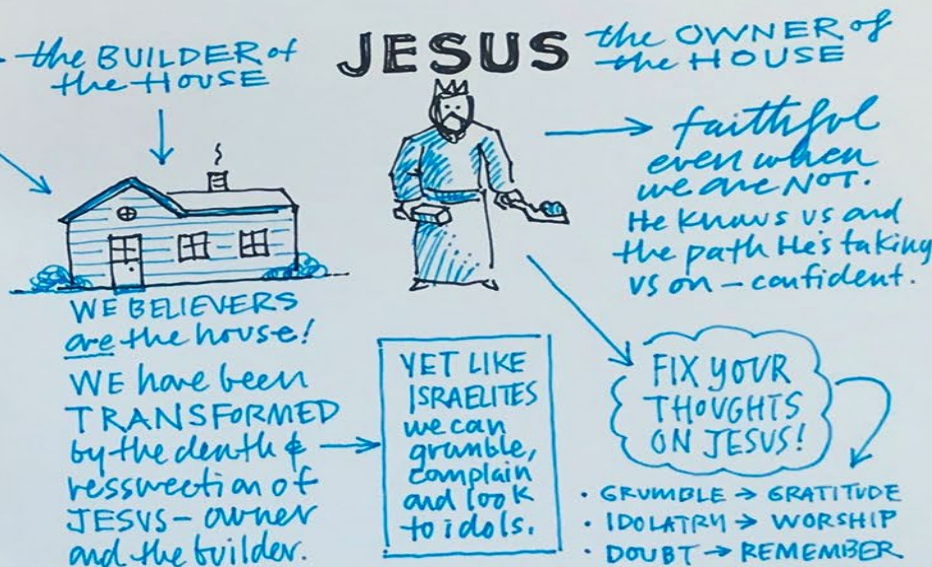 the BUILDER of
the HOUSE
JESUS
the OWNER of
the HOUSE
faithful
even when
we are NOT.
He knows us and
the path He's taking
us on – confident.
WE BELIEVERS
are the house!
WE have been
TRANSFORMED
by the death &
ressurection of
JESUS – owner
and the builder.
YET LIKE
ISRAELITES
we can
grumble,
complain
and look
to idols.
FIX YOUR
THOUGHTS
ON JESUS!
• GRUMBLE → GRATITUDE
• IDOLATRY → WORSHIP
• DOUBT → REMEMBER